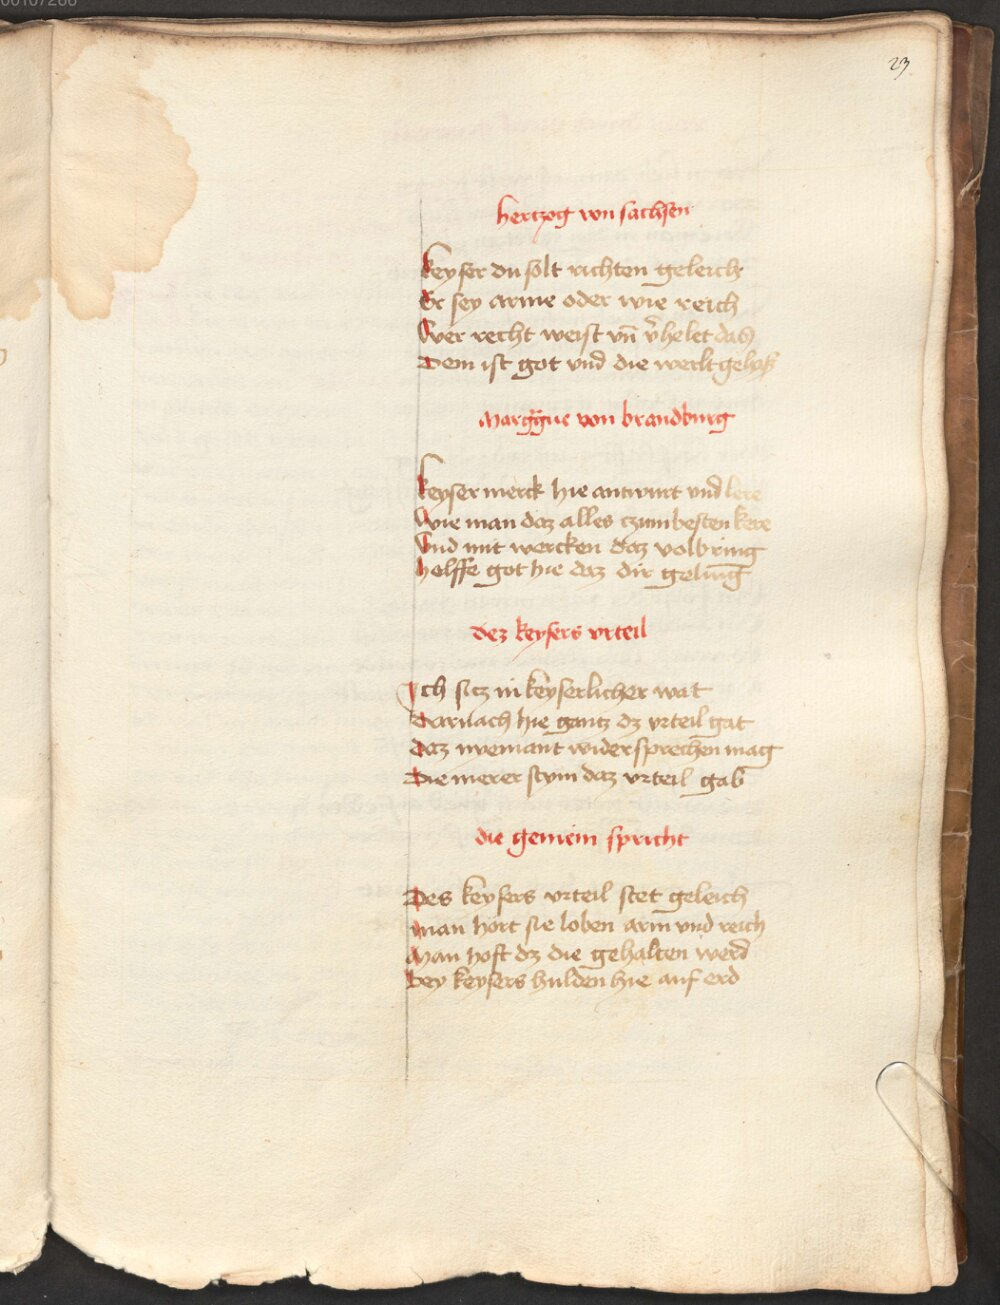 00107206
23
hertzog von sachsen
Keyser du solt richten geleich
Er sey arme oder wie reich
Wer recht weist vñ v̄helet das
Dem ist got vnd die werlt gehaß
Marg̃gue von brandburg
Keyser merck hie antwurt vnd lere
Wie man daz alles czum besten kere
Vnd mit wercken daz volbring
helffe got hie daz dir geling̅
dez keysers vrteil
Ich sicz in keyserlicher wat
Darnach hie gantz dz vrteil gat
Daz nyemant wider sprechen mag
Die merer stym daz vrteil gab
die gemein spricht
Des keysers vrteil stet geleich
man hort sie loben arm vnd reich
Man hoft dz die gehalten werd
Bey keysers hulden hie auf erd